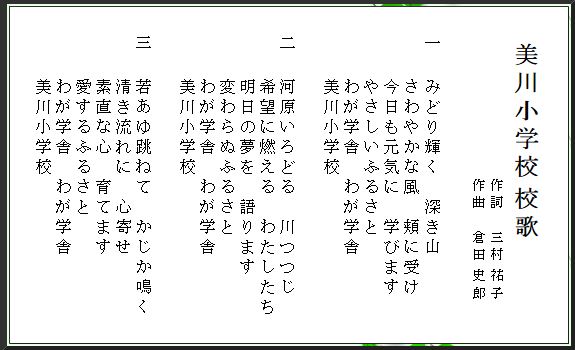 美川小学校 校歌
作詞 三村祐子
作曲 倉田史郎
一 みどり輝く 深き山
さわやかな風 頬に受け
今日も元気に 学びます
やさしいふるさと
わが学舎 わが学舎
美川小学校
二 河原いろどる 川つつじ
希望に燃える わたしたち
明日の夢を 語ります
変わらぬふるさと
わが学舎 わが学舎
美川小学校
三 若あゆ跳ねて かじか鳴く
清き流れに 心寄せ
素直な心 育てます
愛するふるさと
わが学舎 わが学舎
美川小学校